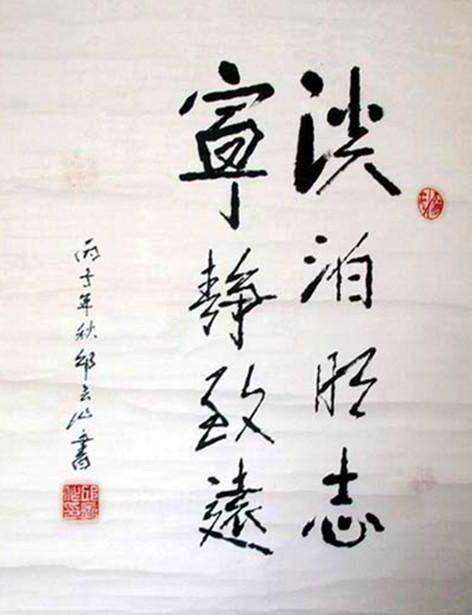 淡泊明志
寧静致遠
丙子年秋邱云山書